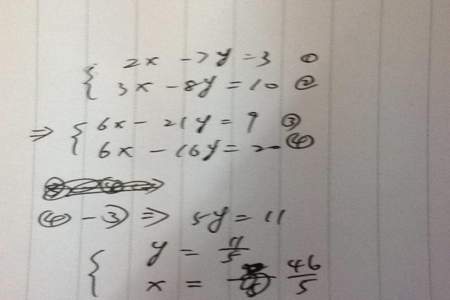 { 2x - 7y = 3 ①
3x - 8y = 10 ②
⇒ { 6x - 21y = 9 ③
6x - 16y = 20 ④
④ - ③ ⇒ 5y = 11
{ y = 11/5
x = 46/5